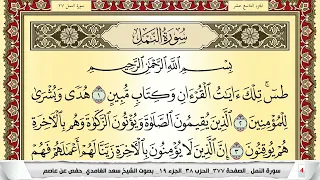 الجزء التاسع عشر
سورة النمل ٢٧
سُورَةُ النَّمْلِ
بِسْمِ اللَّهِ الرَّحْمَٰنِ الرَّحِيمِ
طسٓ ۚ تِلْكَ ءَايَٰتُ الْقُرْءَانِ وَكِتَابٍ مُّبِينٍ ١ هُدًى وَبُشْرَىٰ
لِلْمُؤْمِنِينَ ٢ الَّذِينَ يُقِيمُونَ الصَّلَوٰةَ وَيُؤْتُونَ الزَّكَوٰةَ وَهُم بِالْءَاخِرَةِ
هُمْ يُوقِنُونَ ٣ إِنَّ الَّذِينَ لَا يُؤْمِنُونَ بِالْءَاخِرَةِ زَيَّنَّا لَهُمْ أَعْمَٰلَهُمْ فَهُمْ
سورة النمل . الصفحة ٣٧٧ . الحزب ٣٨ . الجزء ١٩ . بصوت الشيخ سعد الغامدي . حفص عن عاصم
4